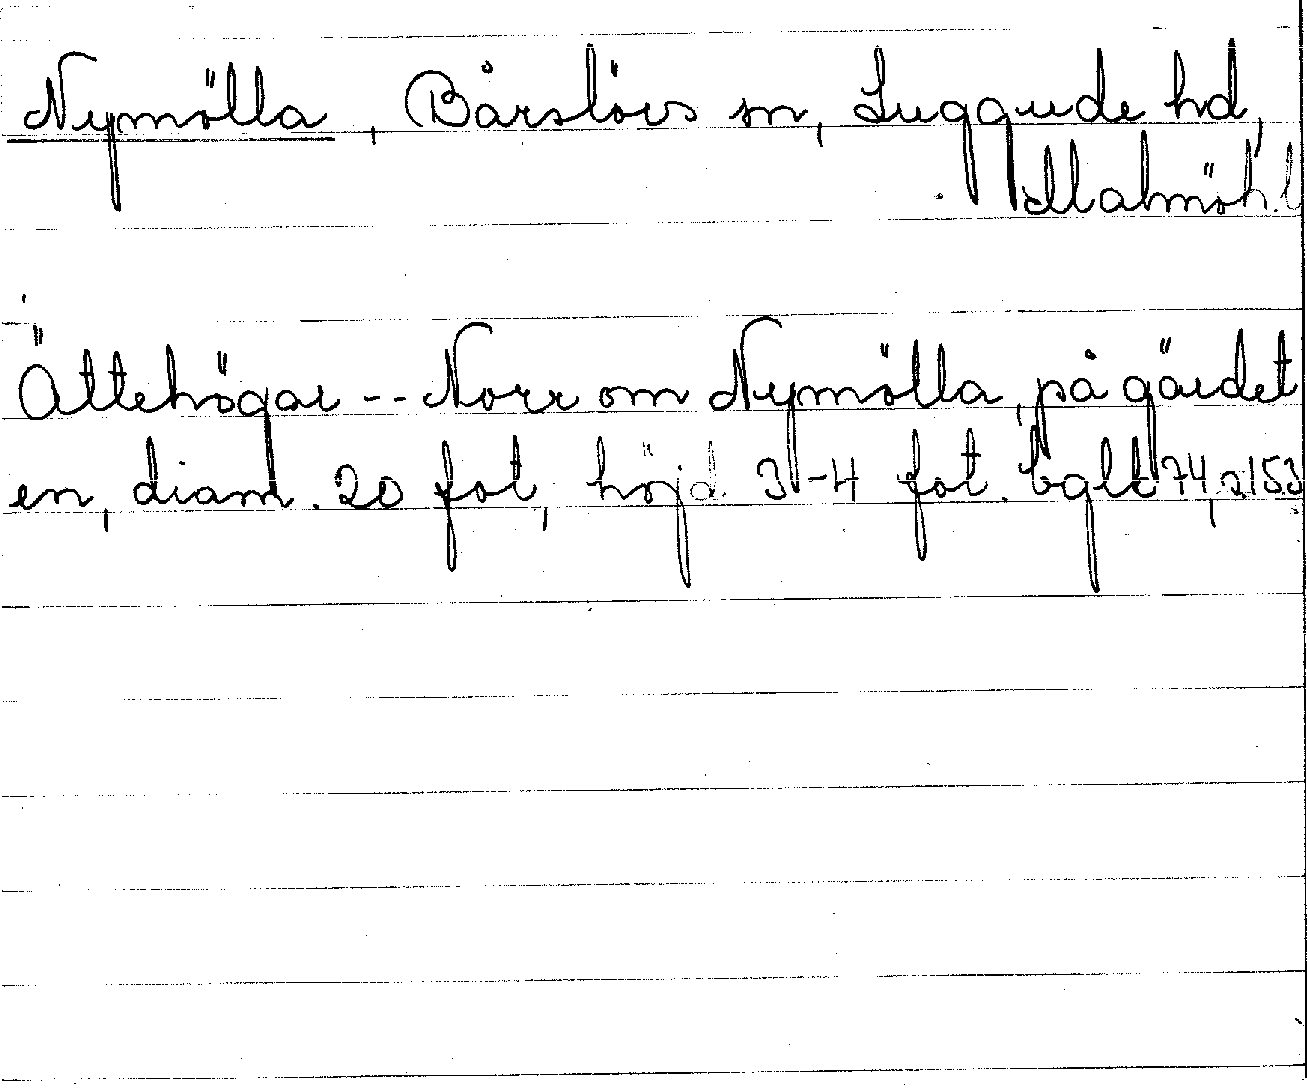 Nymölla, Bårslövs sn, Luggude hd,
Malmöh.l
Ättehögar -- Norr om Nymölla, på gärdet
en, diam. 20 fot, höjd. 3-4 fot. bglt 74, s153